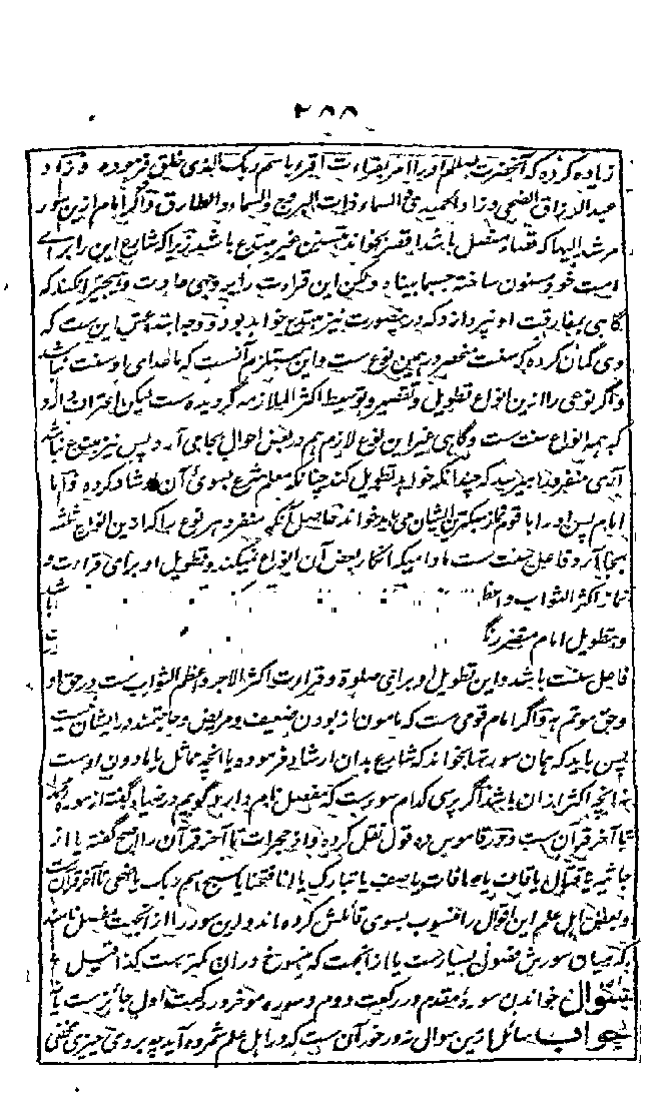 ۲۵۵
زیاده کرده که آنحضرت صلعم او را امر بقراءت اقرء باسم ربک الذی خلق فرموده و زاد
عبد الرزاق الضحی و زاد الحمیدی والسماء ذات البروج والسماء والطارق و اگر امام ازین سور
مرشد الیها که قضاء مفصل باشد اقصر بخواند متسنن غیر مبتدع باشد زیرا که شارع این را برای
امت خود مسنون ساخته حسبما بیناه ولیکن این قراءت را دیدنی و عادت و نمیکند که
گاهی بمفارقت او نپردازد که درین صورت نیز مبتدع خواهد بود و وجه ابتداعش این ست که
وی گمان کرده که سنت منحصر در همین نوع ست و این مستلزم آنست که ماعدای او سنت نباشد
و اگر نوعی را ازین انواع تطویل و تقصیر و توسیط اکثر الملازمه گردیده ست لیکن اعتراف دارد
که همه انواع سنت ست و گاهی غیر این نوع لازم هم در بعض احوال بجا می آرد پس نیز مبتدع نباشد
آری منفرد را میرسد که چندانکه خواهد تطویل کند چنانکه معلم شرع بسوی آن ارشاد کرده و اما
امام پس او را با قوم نماز سبکترین ایشان می باید خواند حاصل آنکه منفرد هر نوع را که ازین انواع ثلثه
بجا آرد فاعل سنت ست مادامیکه انکار بعض آن انواع نمیکند و تطویل او برای قراءت و
نماز اکثر الثواب و اعظ
و تطویل امام
فاعل سنت باشد و این تطویل او برای صلوة و قراءت اکثر الاجر و اعظم الثواب ست در حق او
و حق موتم به و اگر امام قومی ست که مامون از بودن ضعیف و مریض و حاجتمند در ایشان نیست
پس باید که همان سورتها بخواند که شارع بدان ارشاد فرموده یا انچه مماثل یا مادون اوست
نه انچه اکثر ازان باشد اگر پرسی کدام سور ست که مفصل نام دارد گویم در ضیاء گفته از سوره محمد
تا آخر قرآن ست و در قاموس ده قول نقل کرده و از حجرات تا آخر قرآن را اصح گفته یا از
جاثیه یا قتال یا قاف یا صافات یا صف یا تبارک یا انا فتحنا یا سبح اسم ربک یا ضحی تا آخر قرآن ست
و بعض اهل علم این اقوال را منسوب بسوی قائلش کرده اند و این سور را از انجهت مفصل نامند
که میان سورش فصول بسیار ست یا از انجهت که منسوخ دران کمتر ست کذا قیل
سؤال خواندن سورهٔ مقدم در رکعت دوم و سوره موخر در رکعت اول جائز ست یا نه
جواب سائل ازین سوال در خور آن ست که در اهل علم شمرده آید چه بروی چیزی مخفی